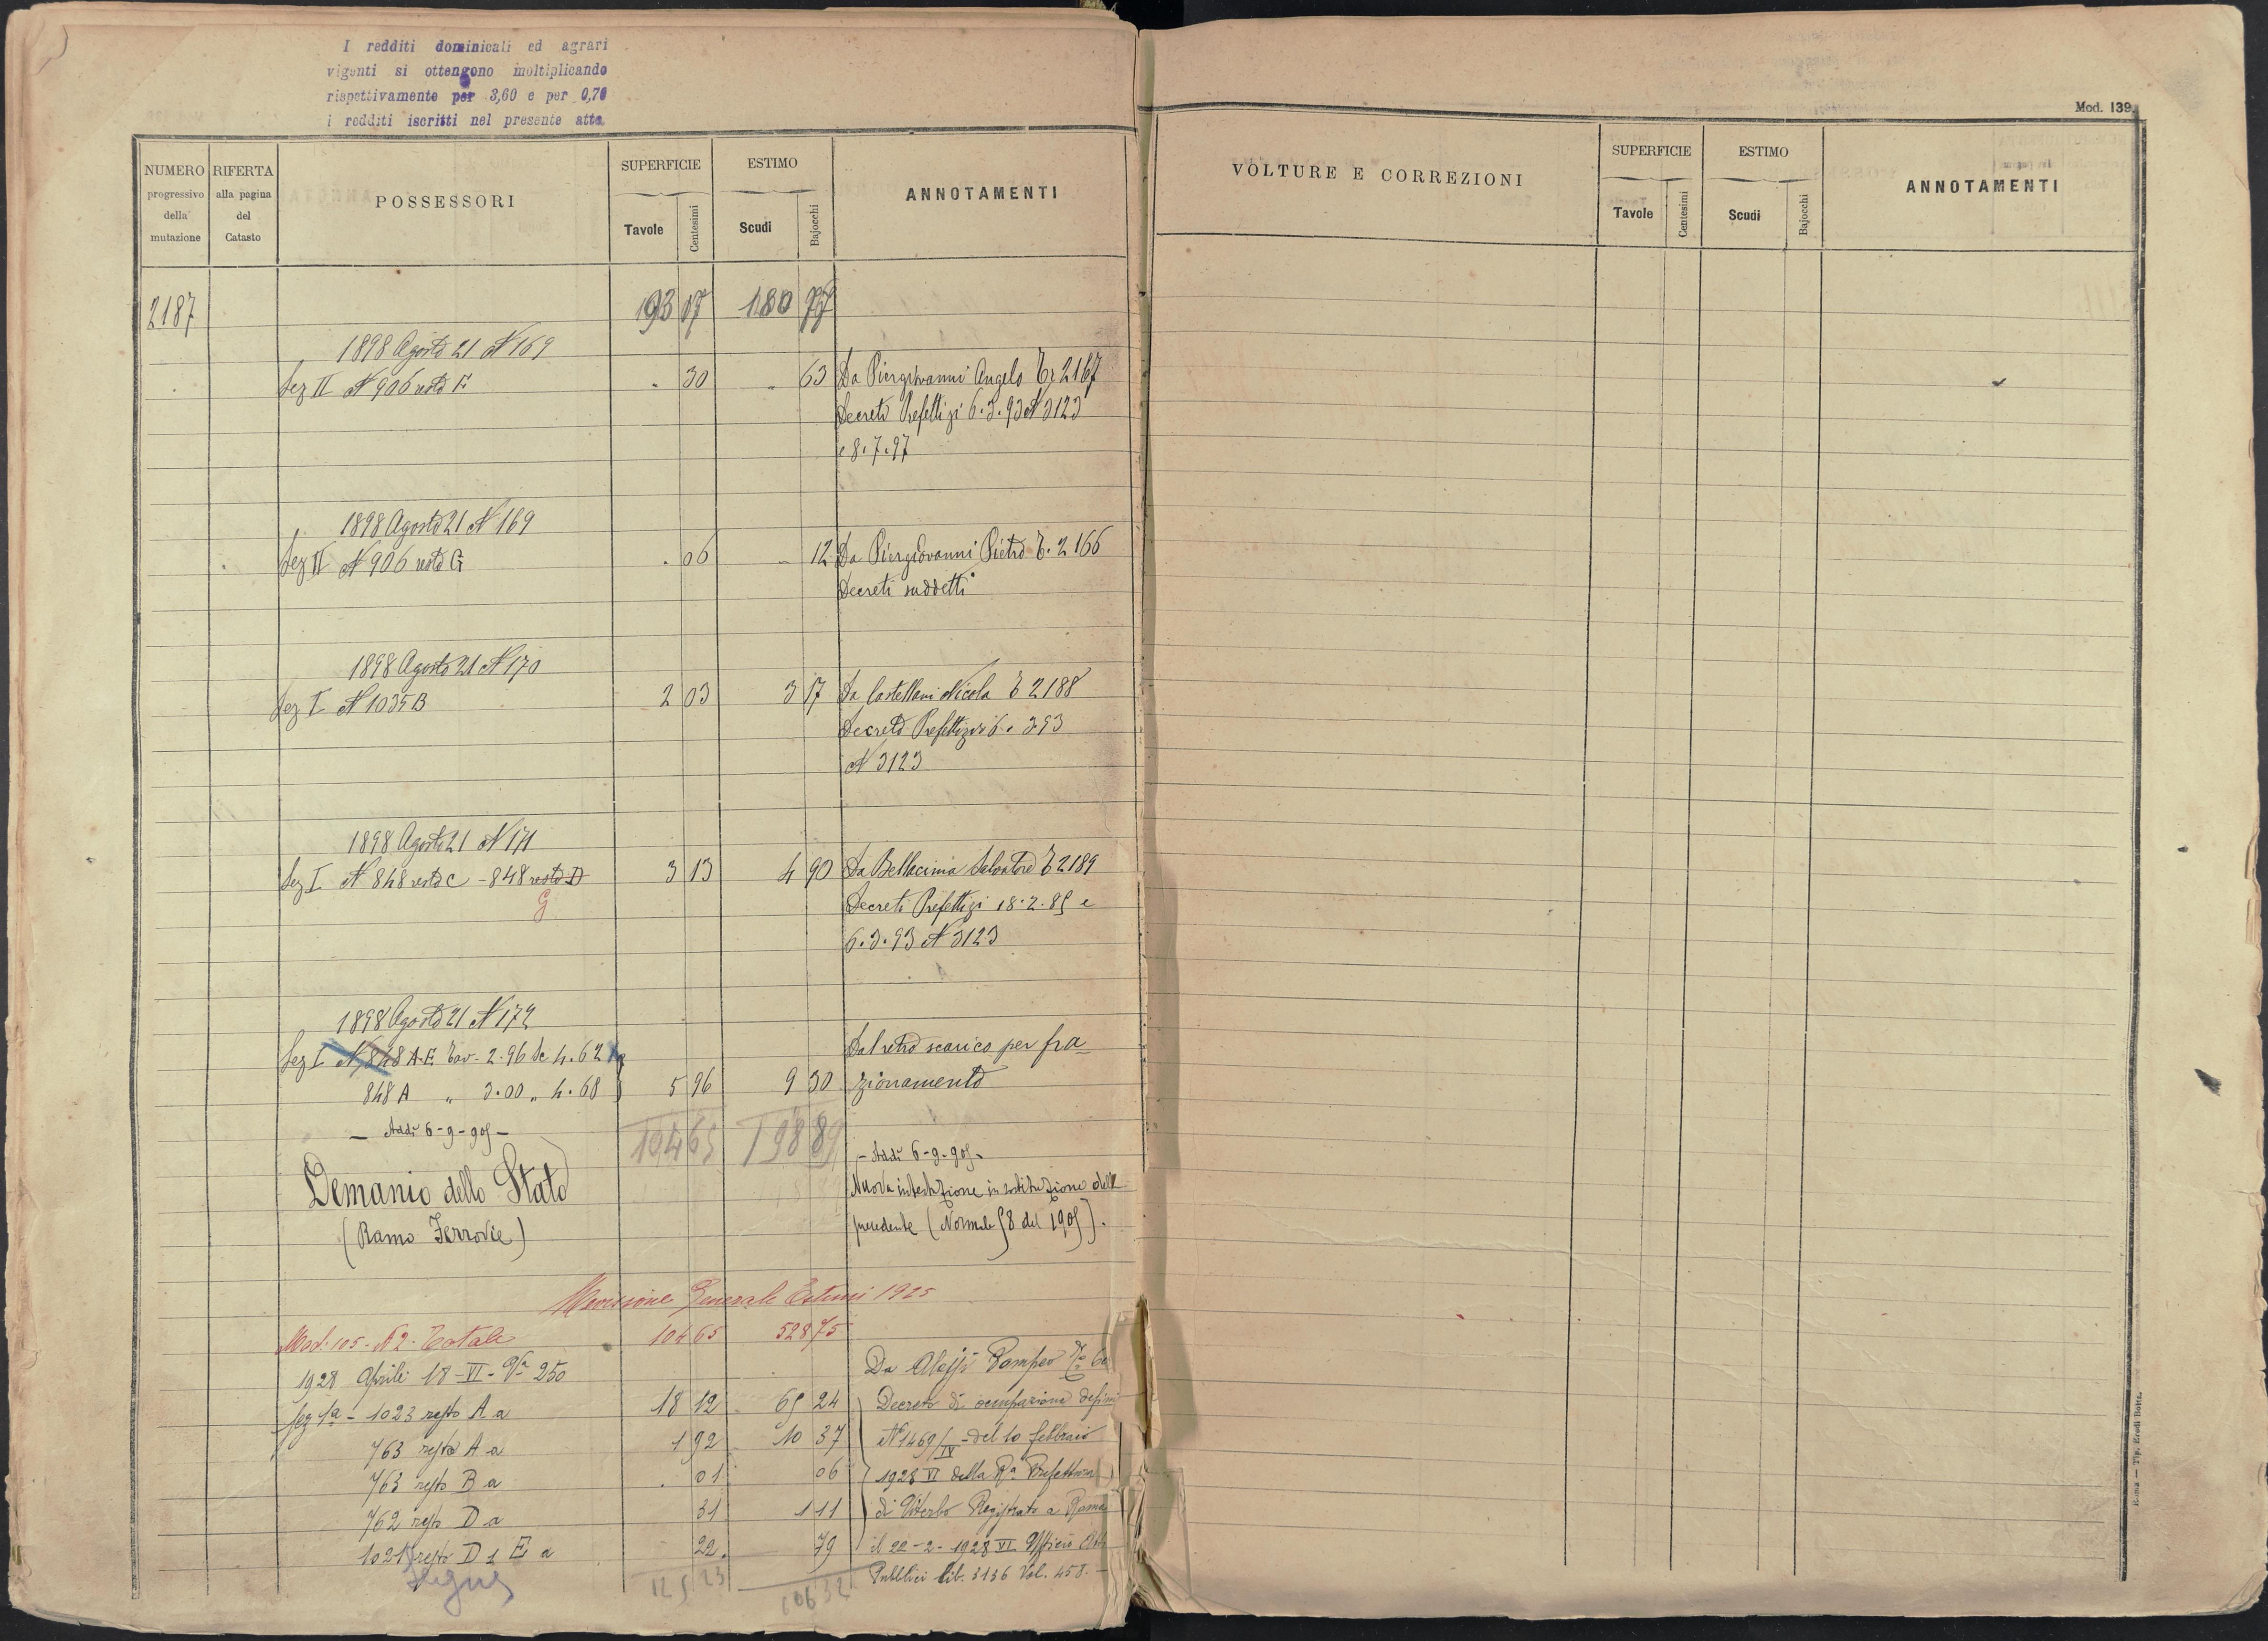 I redditi dominicali ed agrari
vigenti si ottengono moltiplicando
rispettivamente per 3,60 e per 0,70
i redditi iscritti nel presente atto
NUMERO progressivo della mutazione
RIFERTA alla pagina del Catasto
POSSESSORI
SUPERFICIE
Tavole Centesimi
ESTIMO
Scudi Bajocchi
ANNOTAMENTI
2187 193 07 180 77
1898 Agosto 21 N 169
Sez II N 906 resto F. . 30 „ 63 Da Piergiovanni Angelo T. 2167
Decreti Prefettizi 6.3.93 N 3123
e 8.7.97
1898 Agosto 21 N 169
Sez II N 906 resto G . 06 „ 12 Da Piergiovanni Pietro T. 2166
Decreti suddetti
1898 Agosto 21 N 170
Sez I N 1035 B 2 03 3 17 Da Castellani Nicola T 2188
Decreto Prefettizio 6. 3 93
N 3123
1898 Agosto 21 N 171
Sez I N 848 resto C - 848 resto D 3 13 4 90 Da Bellacima Salvatore T 2189
G Decreti Prefettizi 18.2.85 e
6.3.93 N 3123
1898 Agosto 21 N 172
Sez I N 848 A-E Tav. 2.96 Sc 4.62 Dal retro scarico per fra
848 A „ 3.00 „ 4.68 5 96 9 30 zionamento
104 65 198 89
— Addì 6-9-905 — — Addì 6-9-905 —
Demanio dello Stato Nuova intestazione in sostituzione della
(Ramo Ferrovie) precedente (Normale 58 del 1905).
Revisione Generale Estimi 1925
Mod. 105 - N 2. Totale 104 65 528 75
1928 Aprile 18 - VI - Va 250 Da Alessi Pompeo
Sez 1a - 1023 resto A a 18 12 65 24 Decreto di occupazione
763 resto A a 1 92 10 37 N 1469/IV - del 10 febbraio
763 resto B a . 01 06 1928 VI della Ra Prefettura
762 resto D a 31 1 11 di Viterbo Registrato a Roma
1021 resto D 1 E a 22 79 il 22-2-1928 VI Ufficio Atti
Segue 125 23 606 32 Pubblici Lib. 3136 Vol. 458. —
Mod. 139.
VOLTURE E CORREZIONI
SUPERFICIE
Tavole Centesimi
ESTIMO
Scudi Bajocchi
ANNOTAMENTI
Roma — Tip. Eredi Botta.